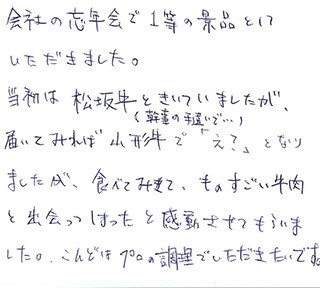 会社の忘年会で1等の景品として
いただきました。
当初は松坂牛ときいていましたが、
(幹事の手違いで…)
届いてみれば山形牛で「え?」となり
ましたが、食べてみて、ものすごい牛肉
と出会ってしまったと感動させてもらいま
した。こんどはプロの調理でいただきたいです。